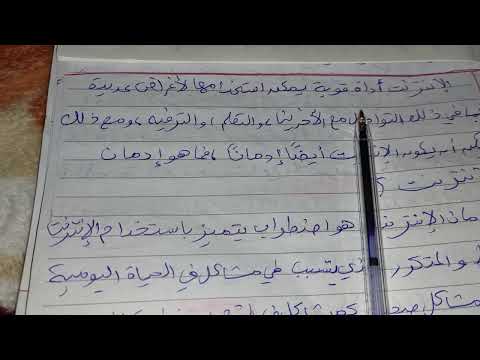 الإنترنت أداة قوية يمكن استخدامها لأغراض عديدة
بما في ذلك التواصل مع الآخرين، والتعلم، والترفيه، ومع ذلك
يمكن أن يكون الإنترنت أيضًا إدمانًا، فما هو إدمان
الإنترنت ؟
إدمان الإنترنت هو اضطراب يتميز باستخدام الإنترنت
والمتكرر الذي يتسبب في مشاكل في الحياة اليومية
مشاكل